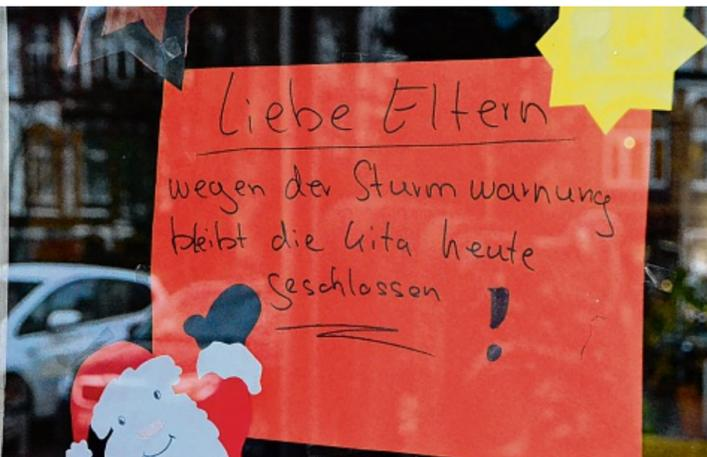 Liebe Eltern
wegen der Sturmwarnung
bleibt die Kita heute
geschlossen !